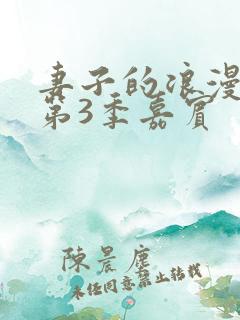 妻子的浪漫
第3季嘉宾
陳晨塵
未任同意禁止转载